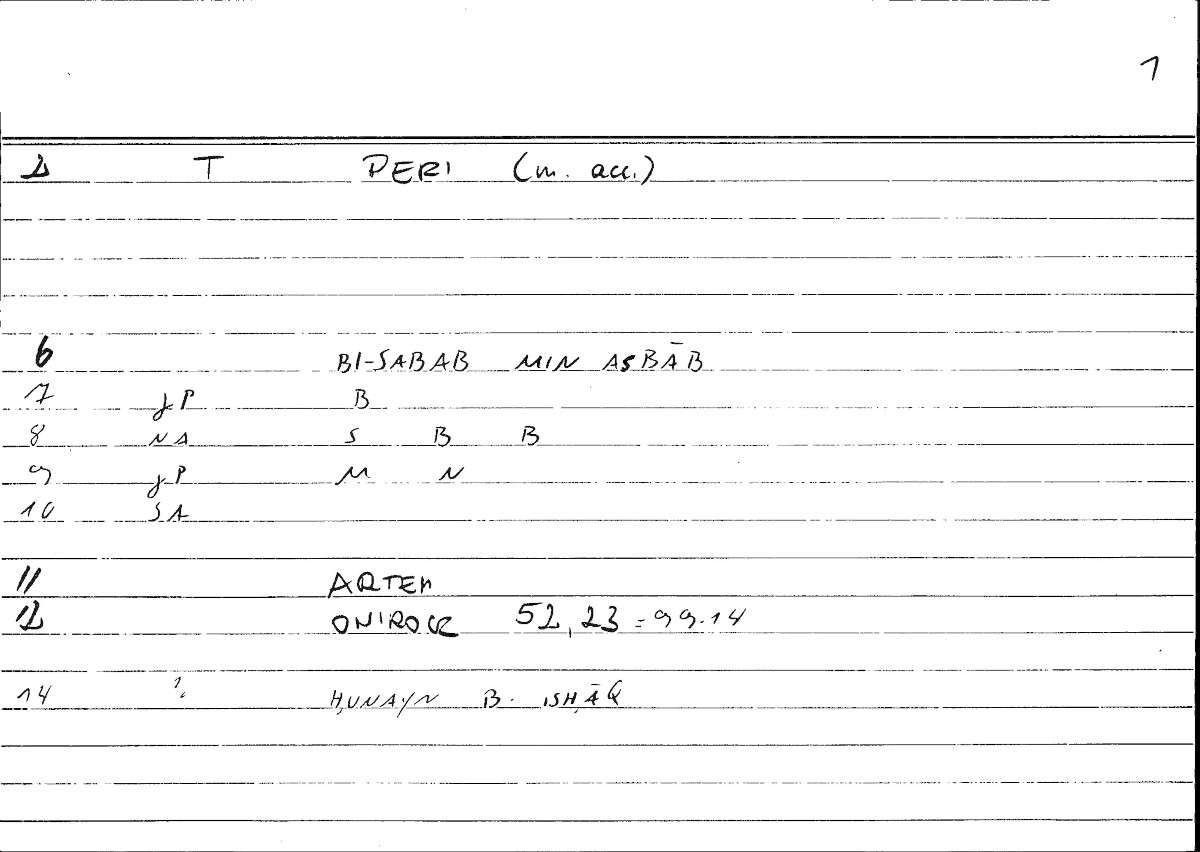 1
2 T PERI (m. acc.)
6 BI-SABAB MIN ASBĀB
7 jP B
8 NA S B B
9 jP M N
10 SA
11 ARTEM
12 ONIROCR 52,23 = 99.14
14 ? ḤUNAYN B. ISḤĀQ